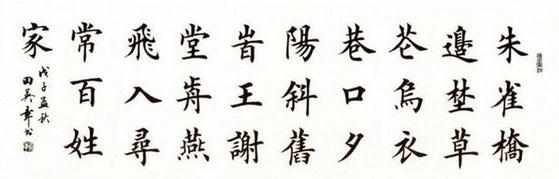 朱雀橋
邊埜草
芲烏衣
巷口夕
陽斜舊
旹王謝
堂歬燕
飛入尋
常百姓
家
戊子孟秋
田英章书